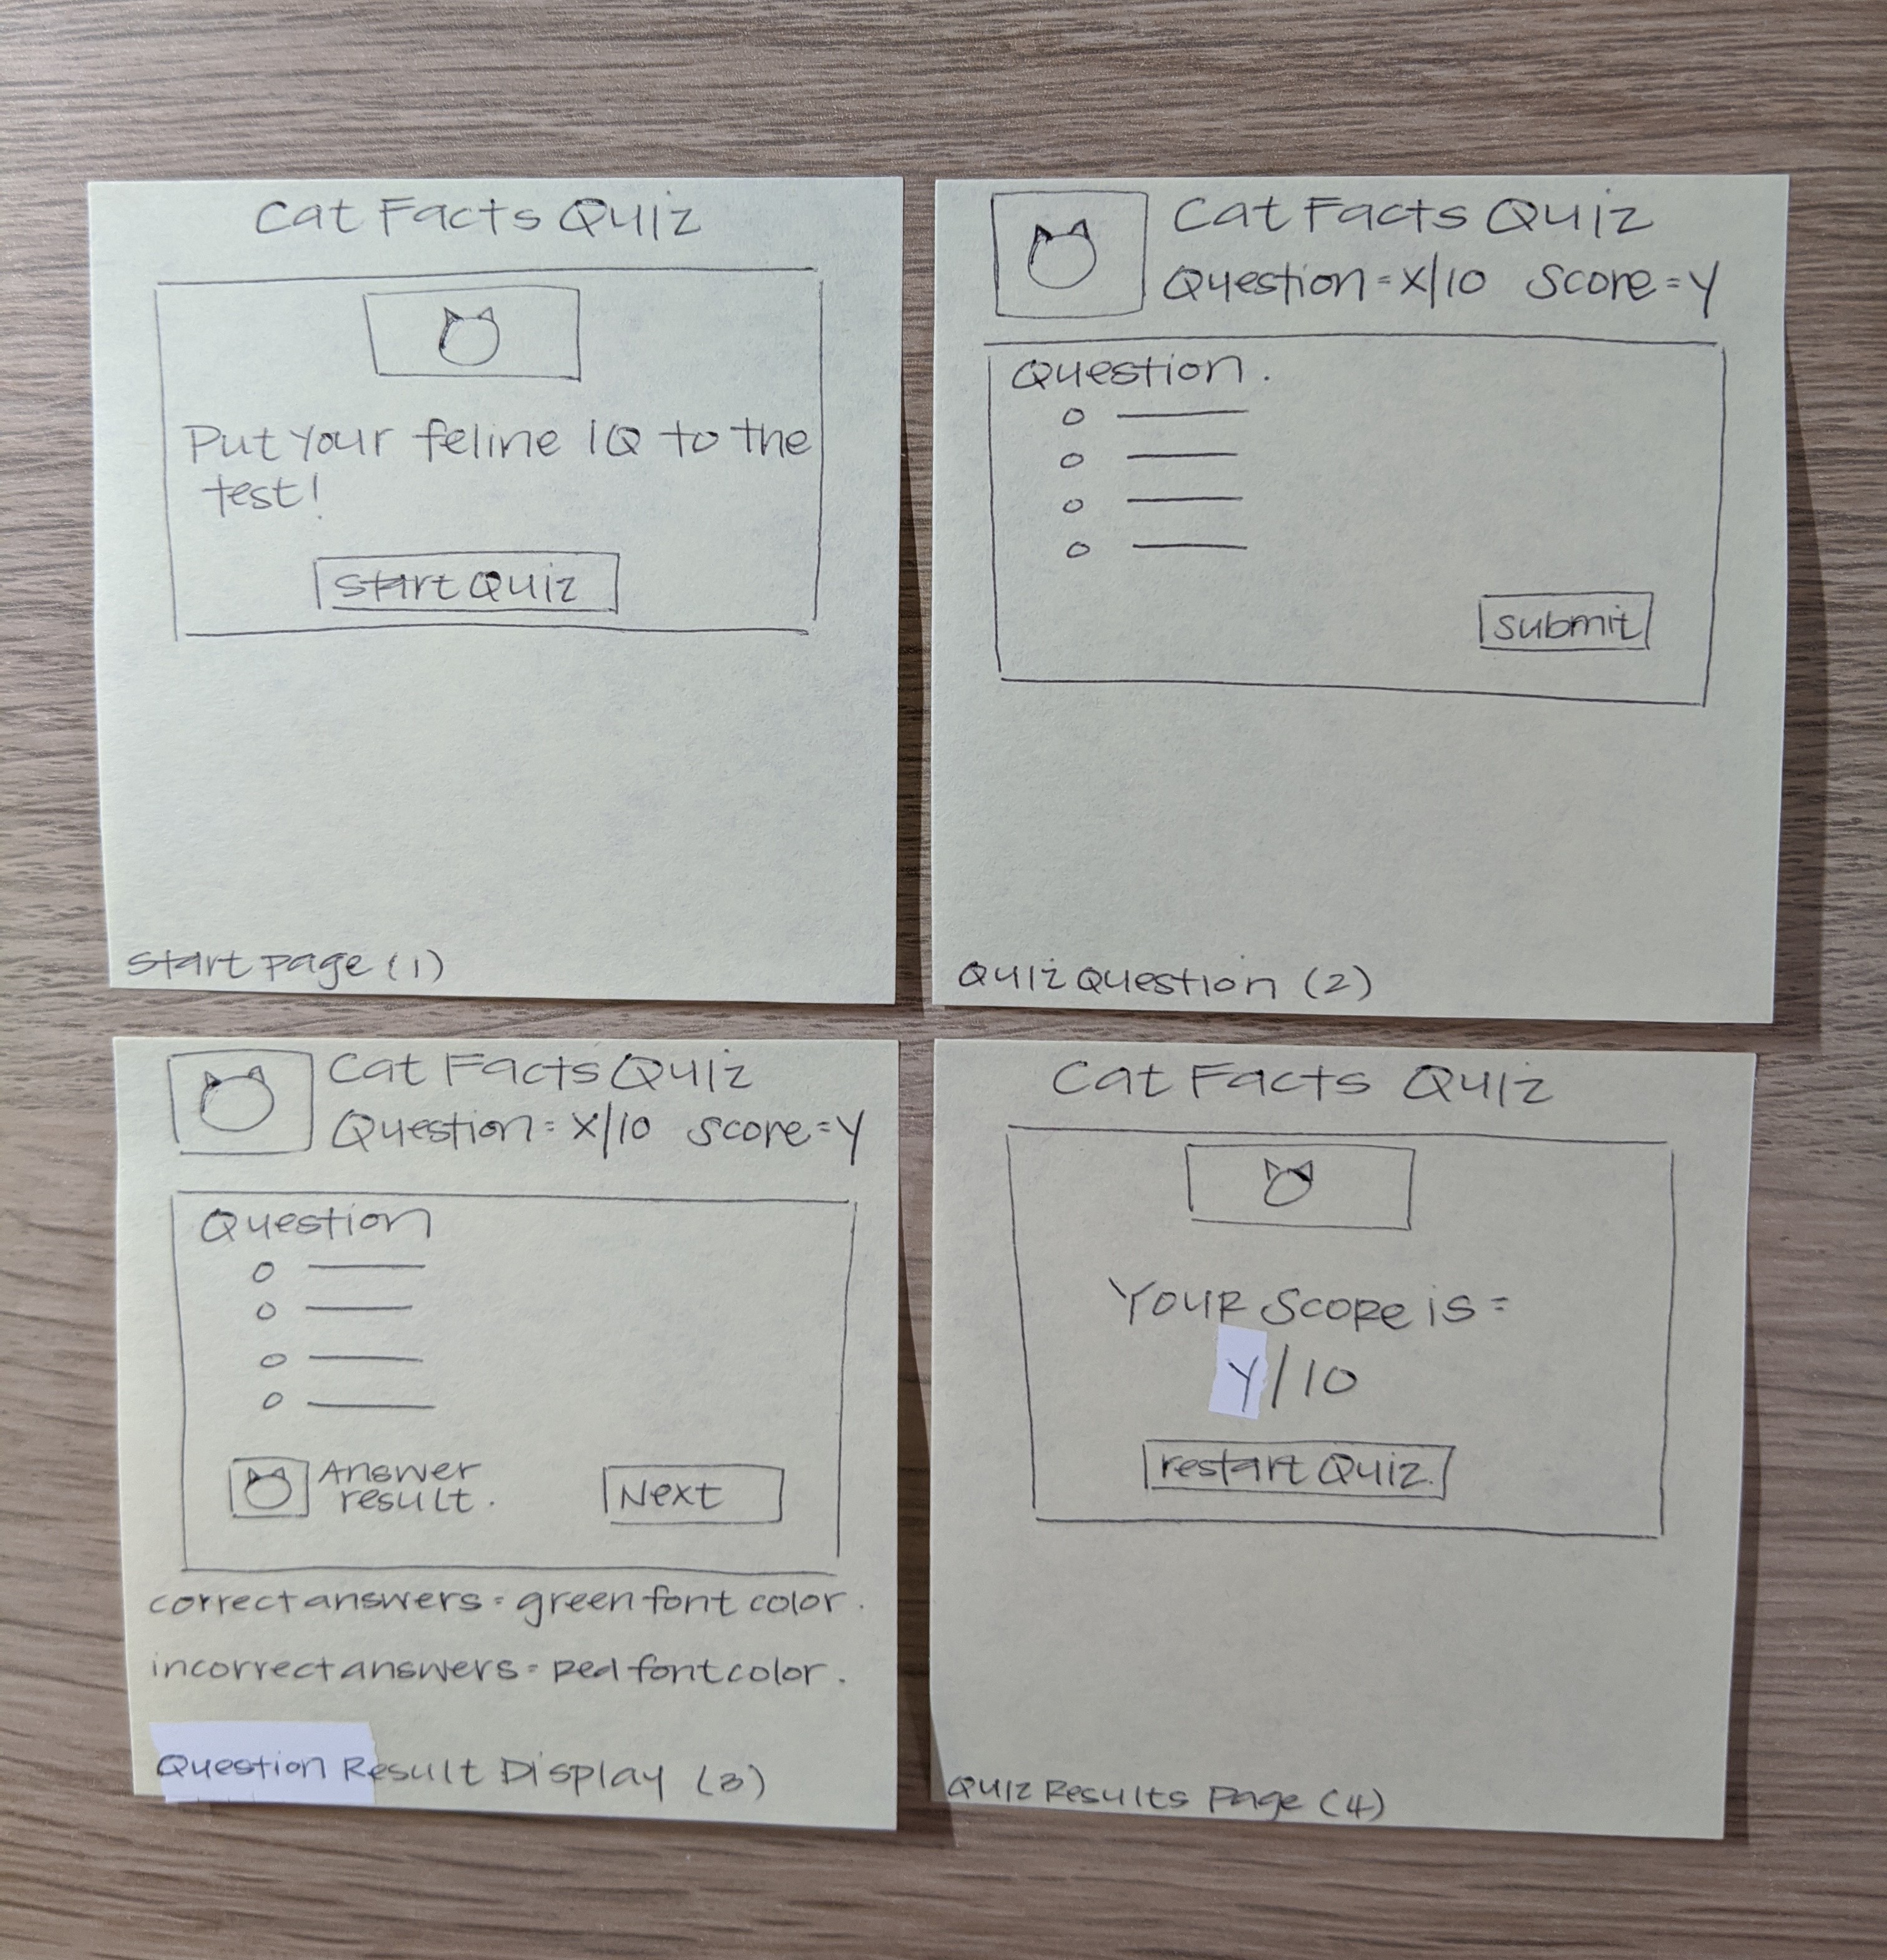 Cat Facts Quiz
Put your feline IQ to the
test!
Start Quiz
Start page (1)
Cat Facts Quiz
Question = X/10 Score = Y
Question.
submit
Quiz Question (2)
Cat Facts Quiz
Question = X/10 Score = Y
Question
Answer
result.
Next
correct answers = green font color.
incorrect answers = red font color.
Question Result Display (3)
Cat Facts Quiz
Your Score is =
Y/10
restart Quiz.
Quiz Results Page (4)